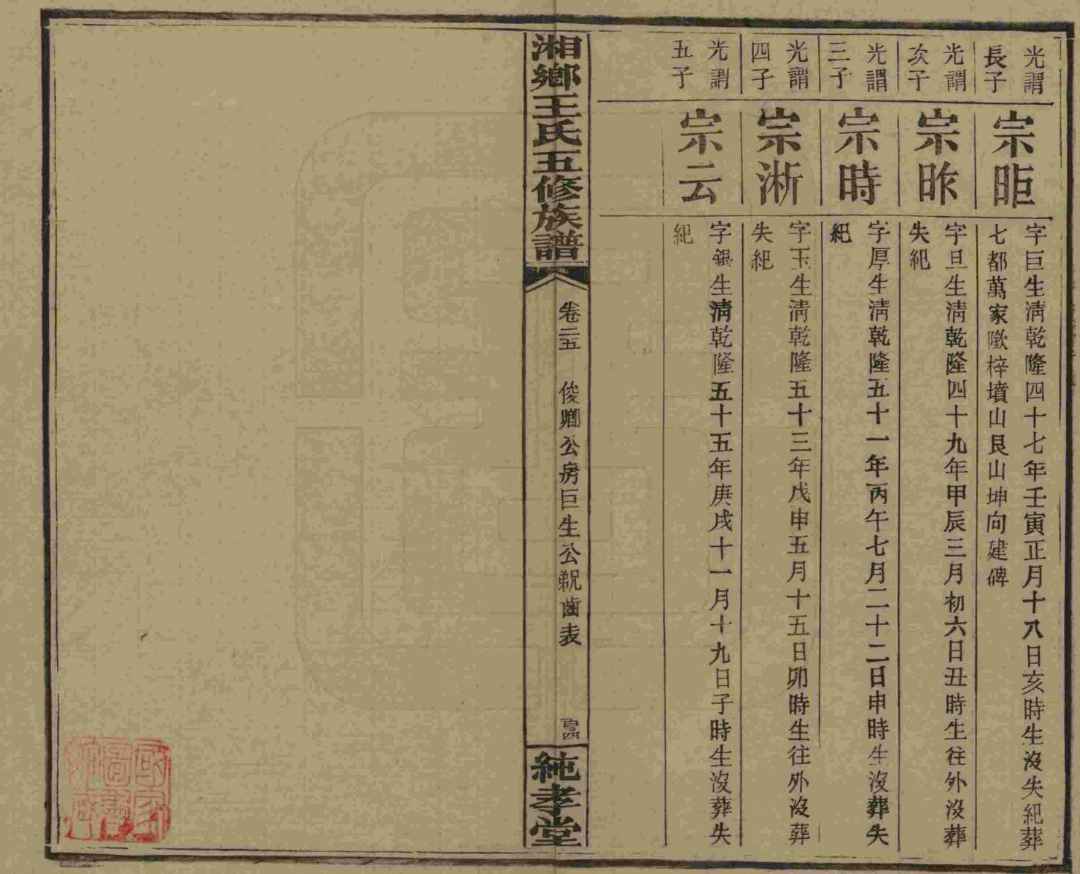 光謂
長子
宗昛
字巨生清乾隆四十七年壬寅正月十八日亥時生沒失紀葬
七都萬家墩梓墳山艮山坤向建碑
光謂
次子
宗昨
字旦生清乾隆四十九年甲辰三月初六日丑時生往外沒葬
失紀
光謂
三子
宗時
字厚生清乾隆五十一年丙午七月二十二日申時生沒葬失
紀
光謂
四子
宗淅
字玉生清乾隆五十三年戊申五月十五日卯時生往外沒葬
失紀
光謂
五子
宗云
字銀生清乾隆五十五年庚戌十一月十九日子時生沒葬失
紀
湘鄉王氏五修族譜
卷二五
俊卿公房巨生公齯齒表
純孝堂